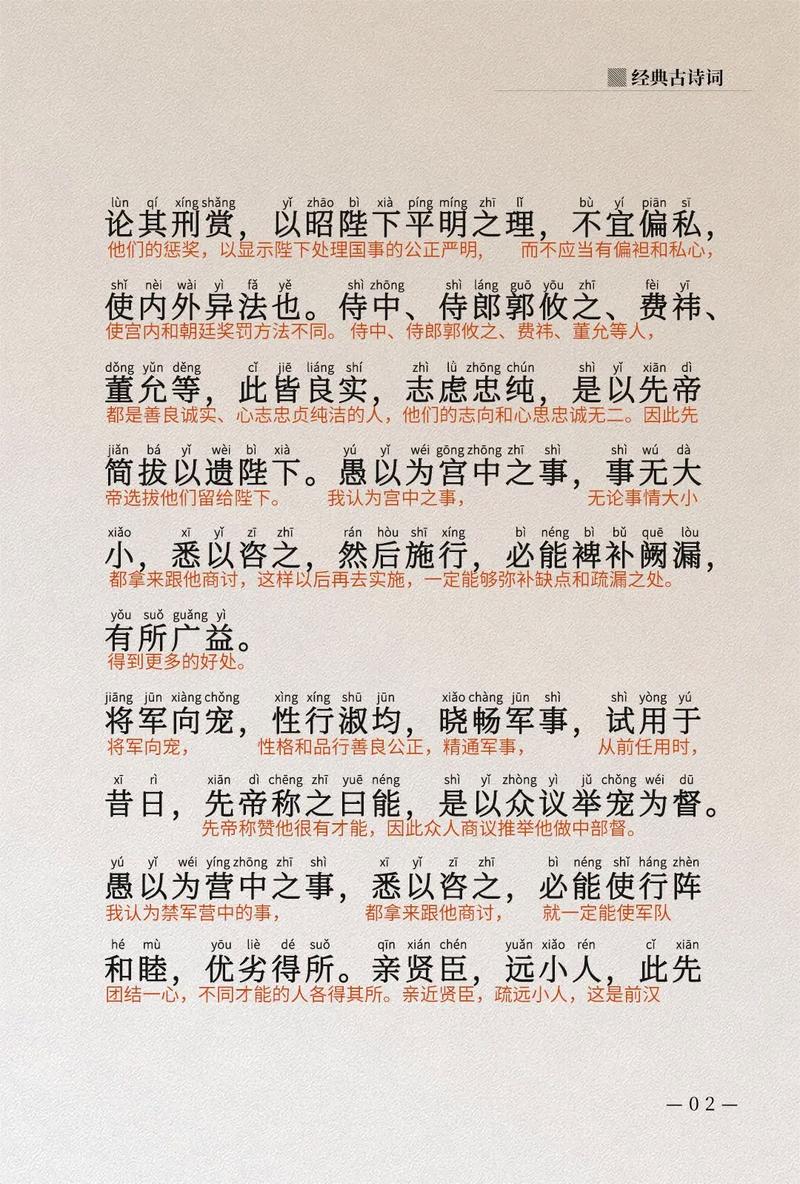 经典古诗词
lùn qí xíng shǎng yǐ zhāo bì xià píng míng zhī lǐ bù yí piān sī
论其刑赏，以昭陛下平明之理，不宜偏私，
他们的惩奖，以显示陛下处理国事的公正严明， 而不应当有偏袒和私心，
shǐ nèi wài yì fǎ yě shì zhōng shì láng guō yōu zhī fèi yī
使内外异法也。侍中、侍郎郭攸之、费祎、
使宫内和朝廷奖罚方法不同。侍中、侍郎郭攸之、费祎、董允等人，
dǒng yǔn děng cǐ jiē liáng shí zhì lǜ zhōng chún shì yǐ xiān dì
董允等，此皆良实，志虑忠纯，是以先帝
都是善良诚实、心志忠贞纯洁的人，他们的志向和心思忠诚无二。因此先
jiǎn bá yǐ wèi bì xià yú yǐ wéi gōng zhōng zhī shì shì wú dà
简拔以遗陛下。愚以为宫中之事，事无大
帝选拔他们留给陛下。 我认为宫中之事， 无论事情大小
xiǎo xī yǐ zī zhī rán hòu shī xíng bì néng bì bǔ quē lòu
小，悉以咨之，然后施行，必能裨补阙漏，
都拿来跟他商讨，这样以后再去实施，一定能够弥补缺点和疏漏之处。
yǒu suǒ guǎng yì
有所广益。
得到更多的好处。
jiāng jūn xiàng chǒng xìng xíng shū jūn xiǎo chàng jūn shì shì yòng yú
将军向宠，性行淑均，晓畅军事，试用于
将军向宠， 性格和品行善良公正，精通军事， 从前任用时，
xī rì xiān dì chēng zhī yuē néng shì yǐ zhòng yì jǔ chǒng wéi dū
昔日，先帝称之曰能，是以众议举宠为督。
先帝称赞他很有才能，因此众人商议推举他做中部督。
yú yǐ wéi yíng zhōng zhī shì xī yǐ zī zhī bì néng shǐ háng zhèn
愚以为营中之事，悉以咨之，必能使行阵
我认为禁军营中的事， 都拿来跟他商讨， 就一定能使军队
hé mù yōu liè dé suǒ qīn xián chén yuǎn xiǎo rén cǐ xiān
和睦，优劣得所。亲贤臣，远小人，此先
团结一心，不同才能的人各得其所。亲近贤臣，疏远小人，这是前汉
— 02 —